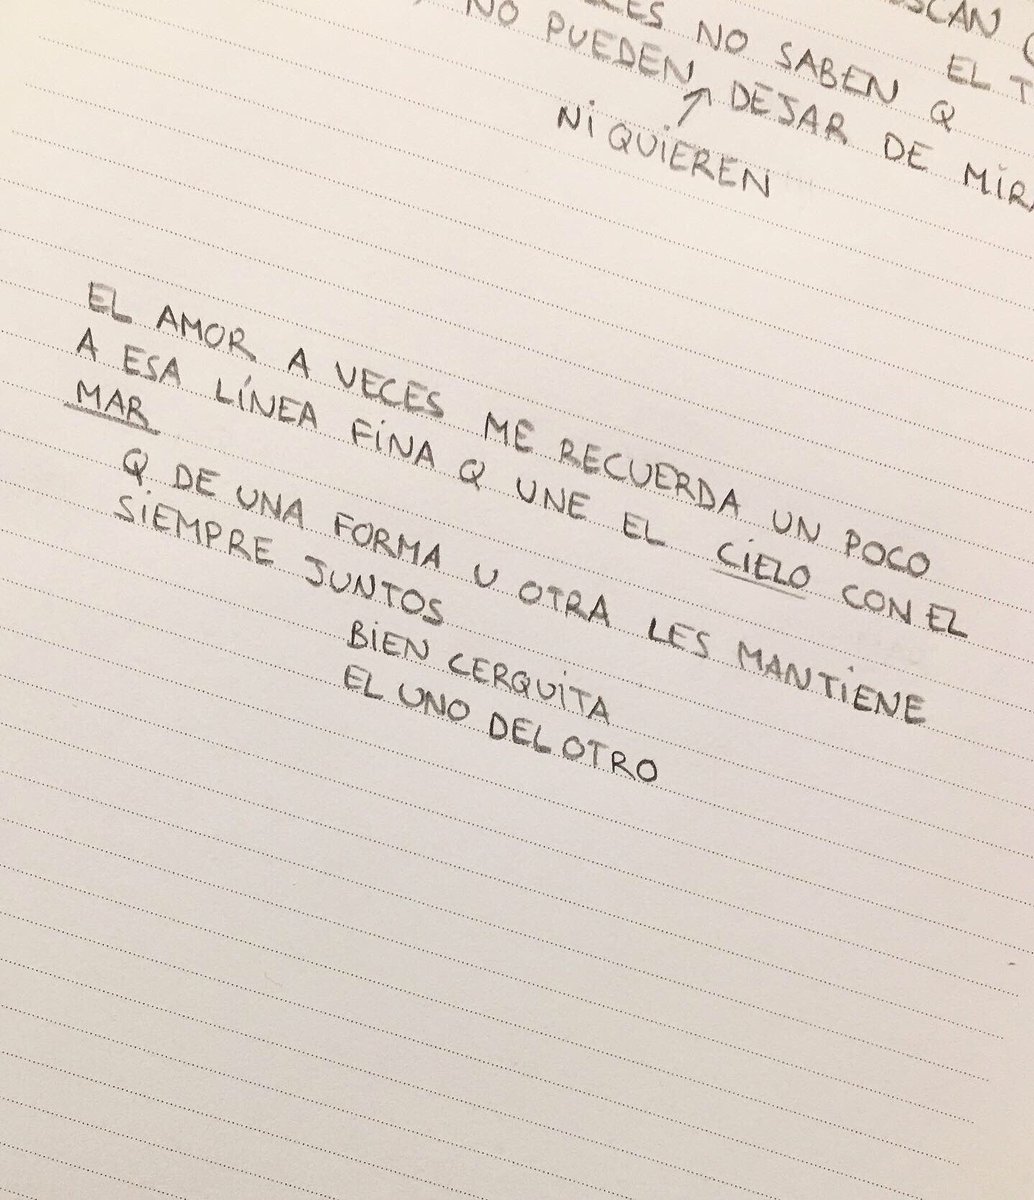 NO SABEN Q EL
NO PUEDEN DEJAR DE
NI QUIEREN
EL AMOR A VECES ME RECUERDA UN POCO
A ESA LÍNEA FINA Q UNE EL CIELO CON EL
MAR
Q DE UNA FORMA U OTRA LES MANTIENE
SIEMPRE JUNTOS
BIEN CERQUITA
EL UNO DEL OTRO